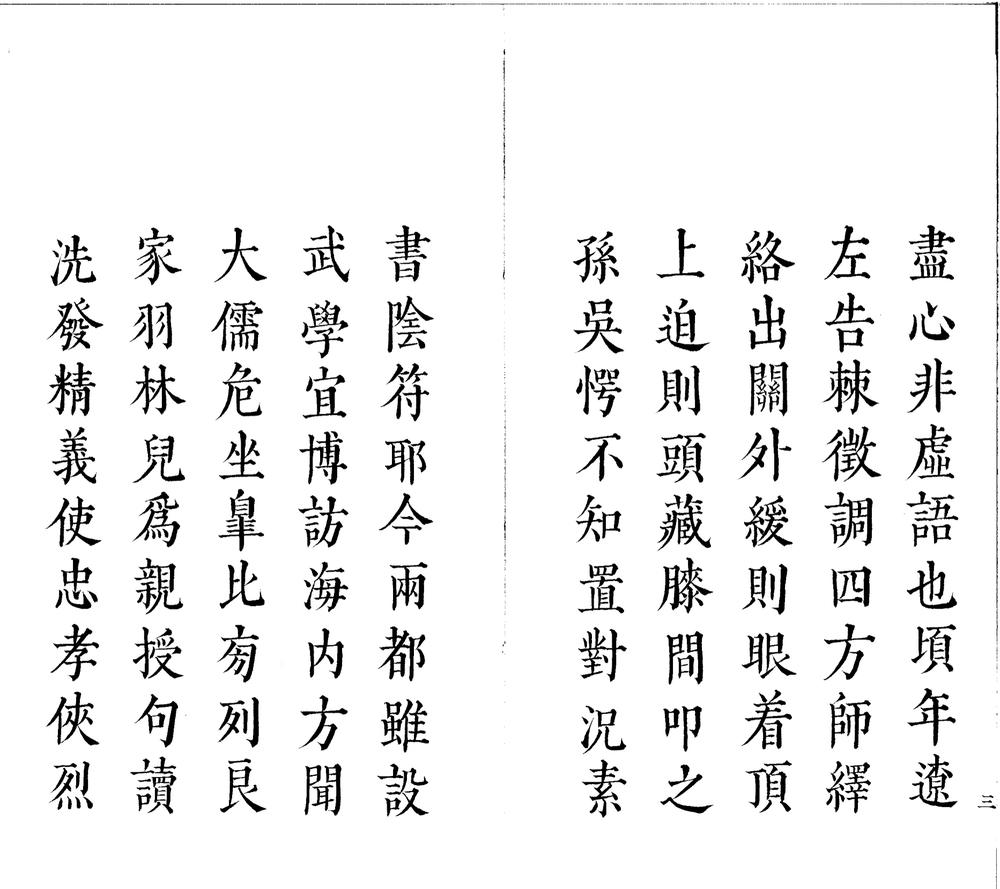 盡心非虛語也頃年遼
左告棘徵調四方師繹
絡出關外緩則眼着頂
上迫則頭藏膝間叩之
孫吳愕不知置對況素
書陰符耶今兩都雖設
武學宜博訪海內方聞
大儒危坐臯比旁列良
家羽林兒爲親授句讀
洗發精義使忠孝俠烈
三